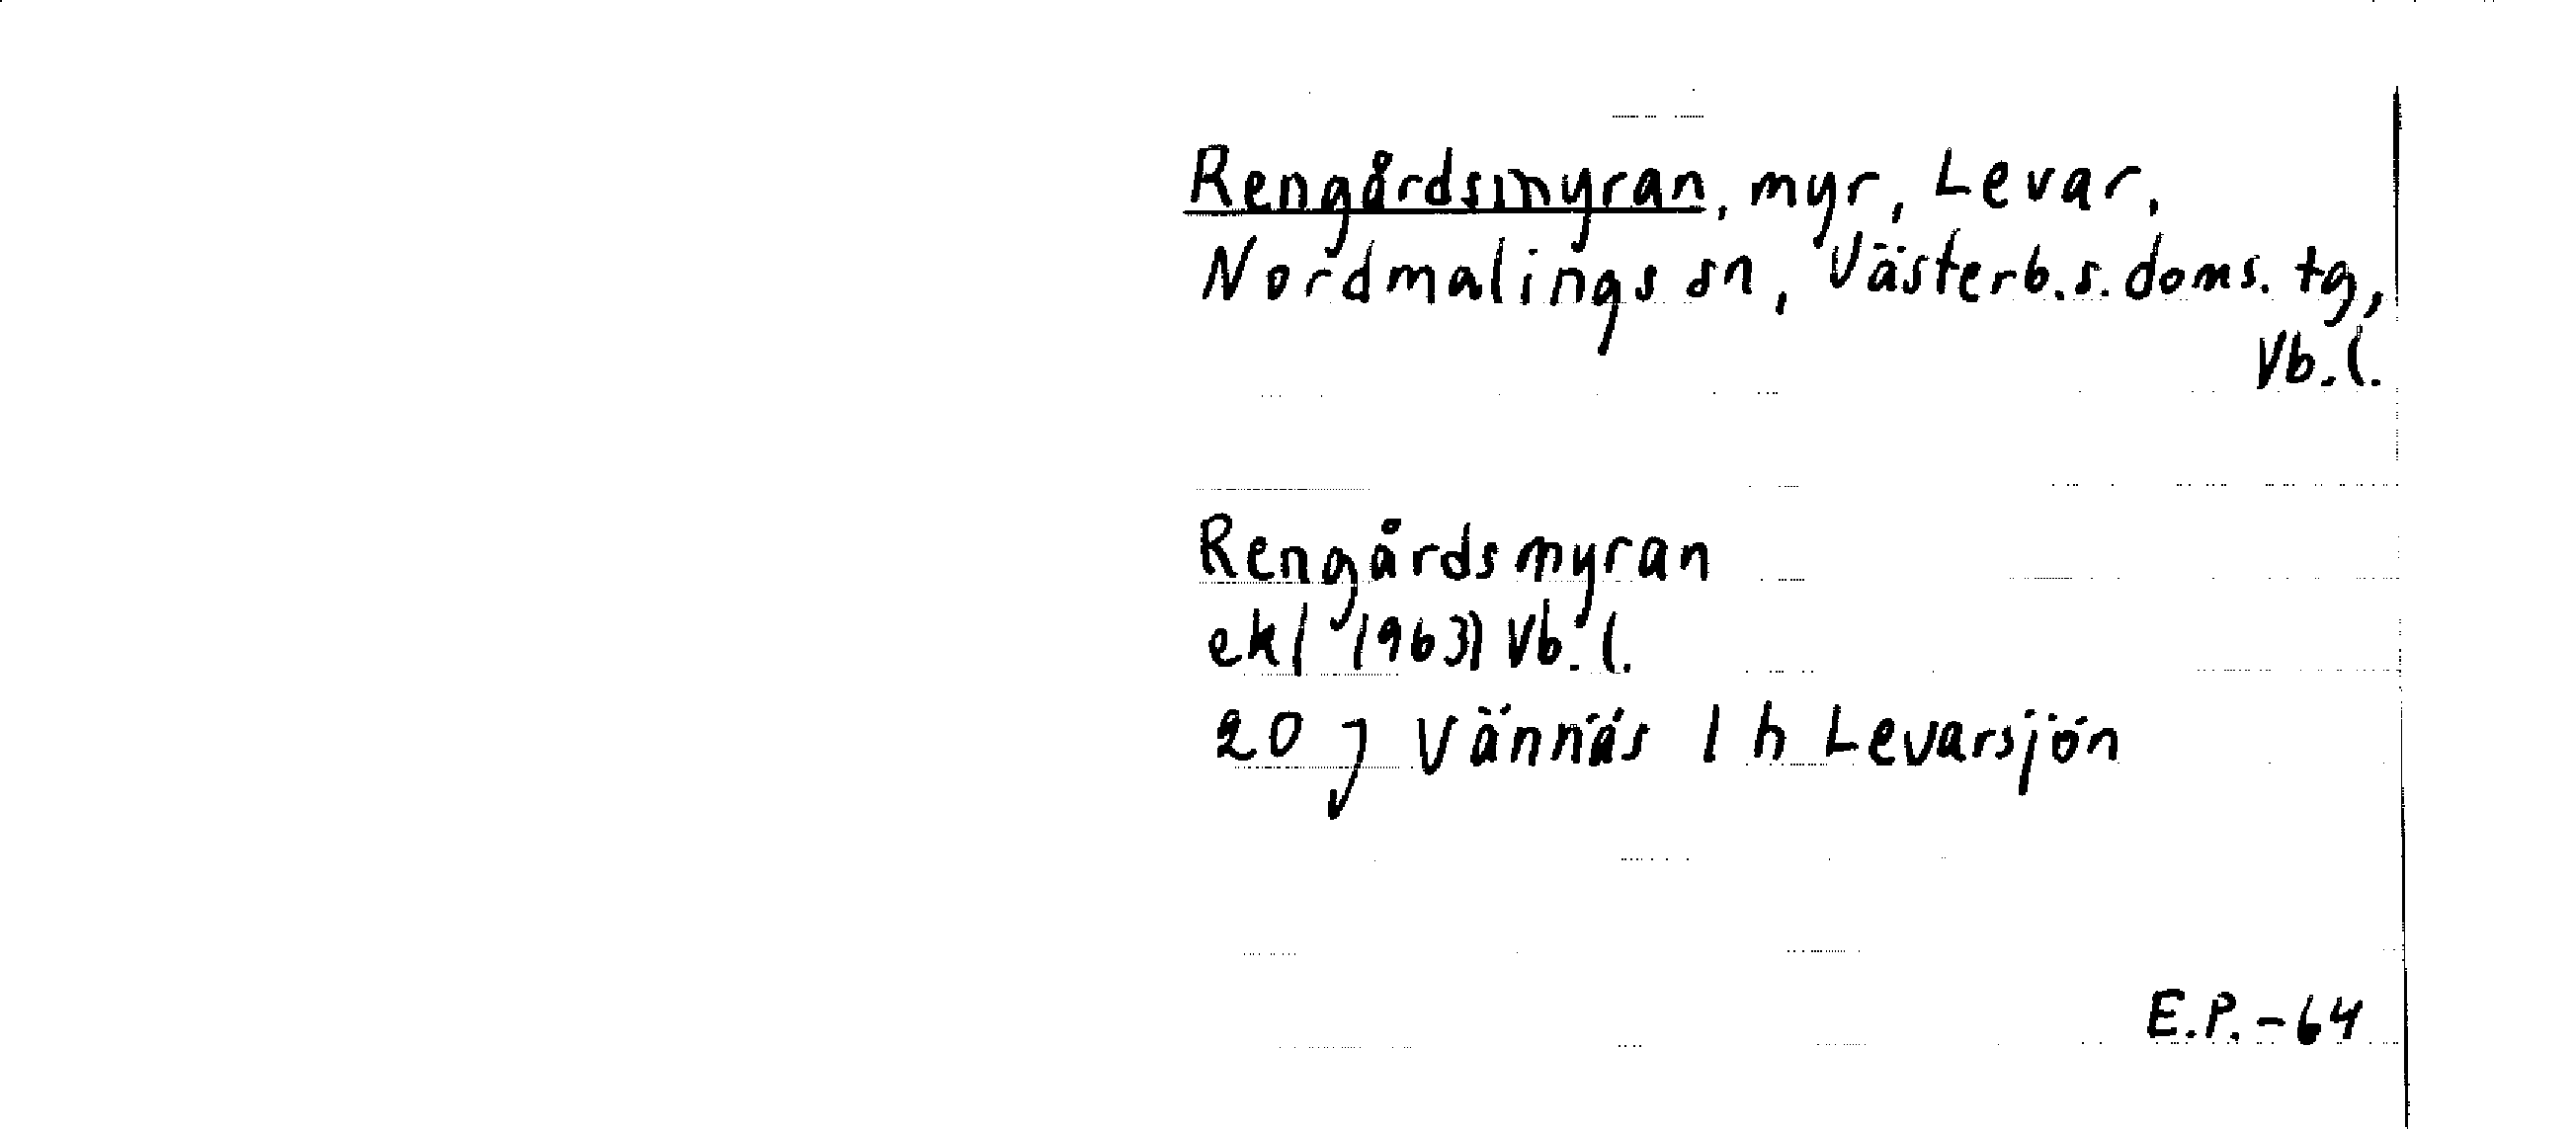 Rengårdsmyran, myr, Levar,
Nordmalings sn, Västerb.s.doms.tg,
Vb.l.
Rengårdsmyran
ekl 1963) Vb.l.
20 J Vännäs 1 h Levarsjön
E.P.-64